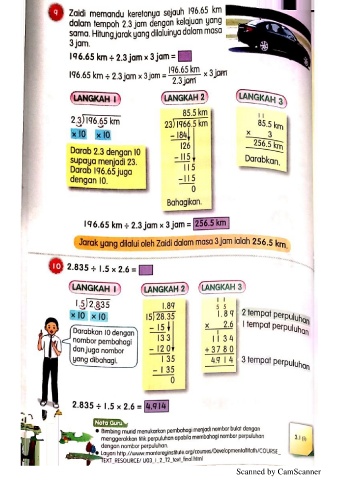 9 Zaidi memandu keretanya sejauh 196.65 km
dalam tempoh 2.3 jam dengan kelajuan yang
sama. Hitung jarak yang dilaluinya dalam masa
3 jam.
196.65 km ÷ 2.3 jam × 3 jam =
196.65 km ÷ 2.3 jam × 3 jam = 196.65 km / 2.3 jam × 3 jam
LANGKAH 1
2.3 196.65 km
× 10 × 10
Darab 2.3 dengan 10
supaya menjadi 23.
Darab 196.65 juga
dengan 10.
LANGKAH 2
85.5 km
23 1966.5 km
-184
126
-115
115
-115
0
Bahagikan.
LANGKAH 3
1 1
85.5 km
× 3
256.5 km
Darabkan.
196.65 km ÷ 2.3 jam × 3 jam = 256.5 km
Jarak yang dilalui oleh Zaidi dalam masa 3 jam ialah 256.5 km.
10 2.835 ÷ 1.5 × 2.6 =
LANGKAH 1
1.5 2.835
× 10 × 10
Darabkan 10 dengan
nombor pembahagi
dan juga nombor
yang dibahagi.
LANGKAH 2
1.89
15 28.35
-15
133
-120
135
-135
0
LANGKAH 3
1 1
5 5
1.89 2 tempat perpuluhan
× 2.6 1 tempat perpuluhan
1134
+3780
4.914 3 tempat perpuluhan
2.835 ÷ 1.5 × 2.6 = 4.914
Nota Guru
• Bimbing murid menukarkan pembahagi menjadi nombor bulat dengan
menggerakkan titik perpuluhan apabila membahagi nombor perpuluhan
dengan nombor perpuluhan.
• Layari http://www.montereyinstitute.org/courses/DevelopmentalMath/COURSE_
TEXT_RESOURCE/ U03_L2_T2_text_final.html
Scanned by CamScanner